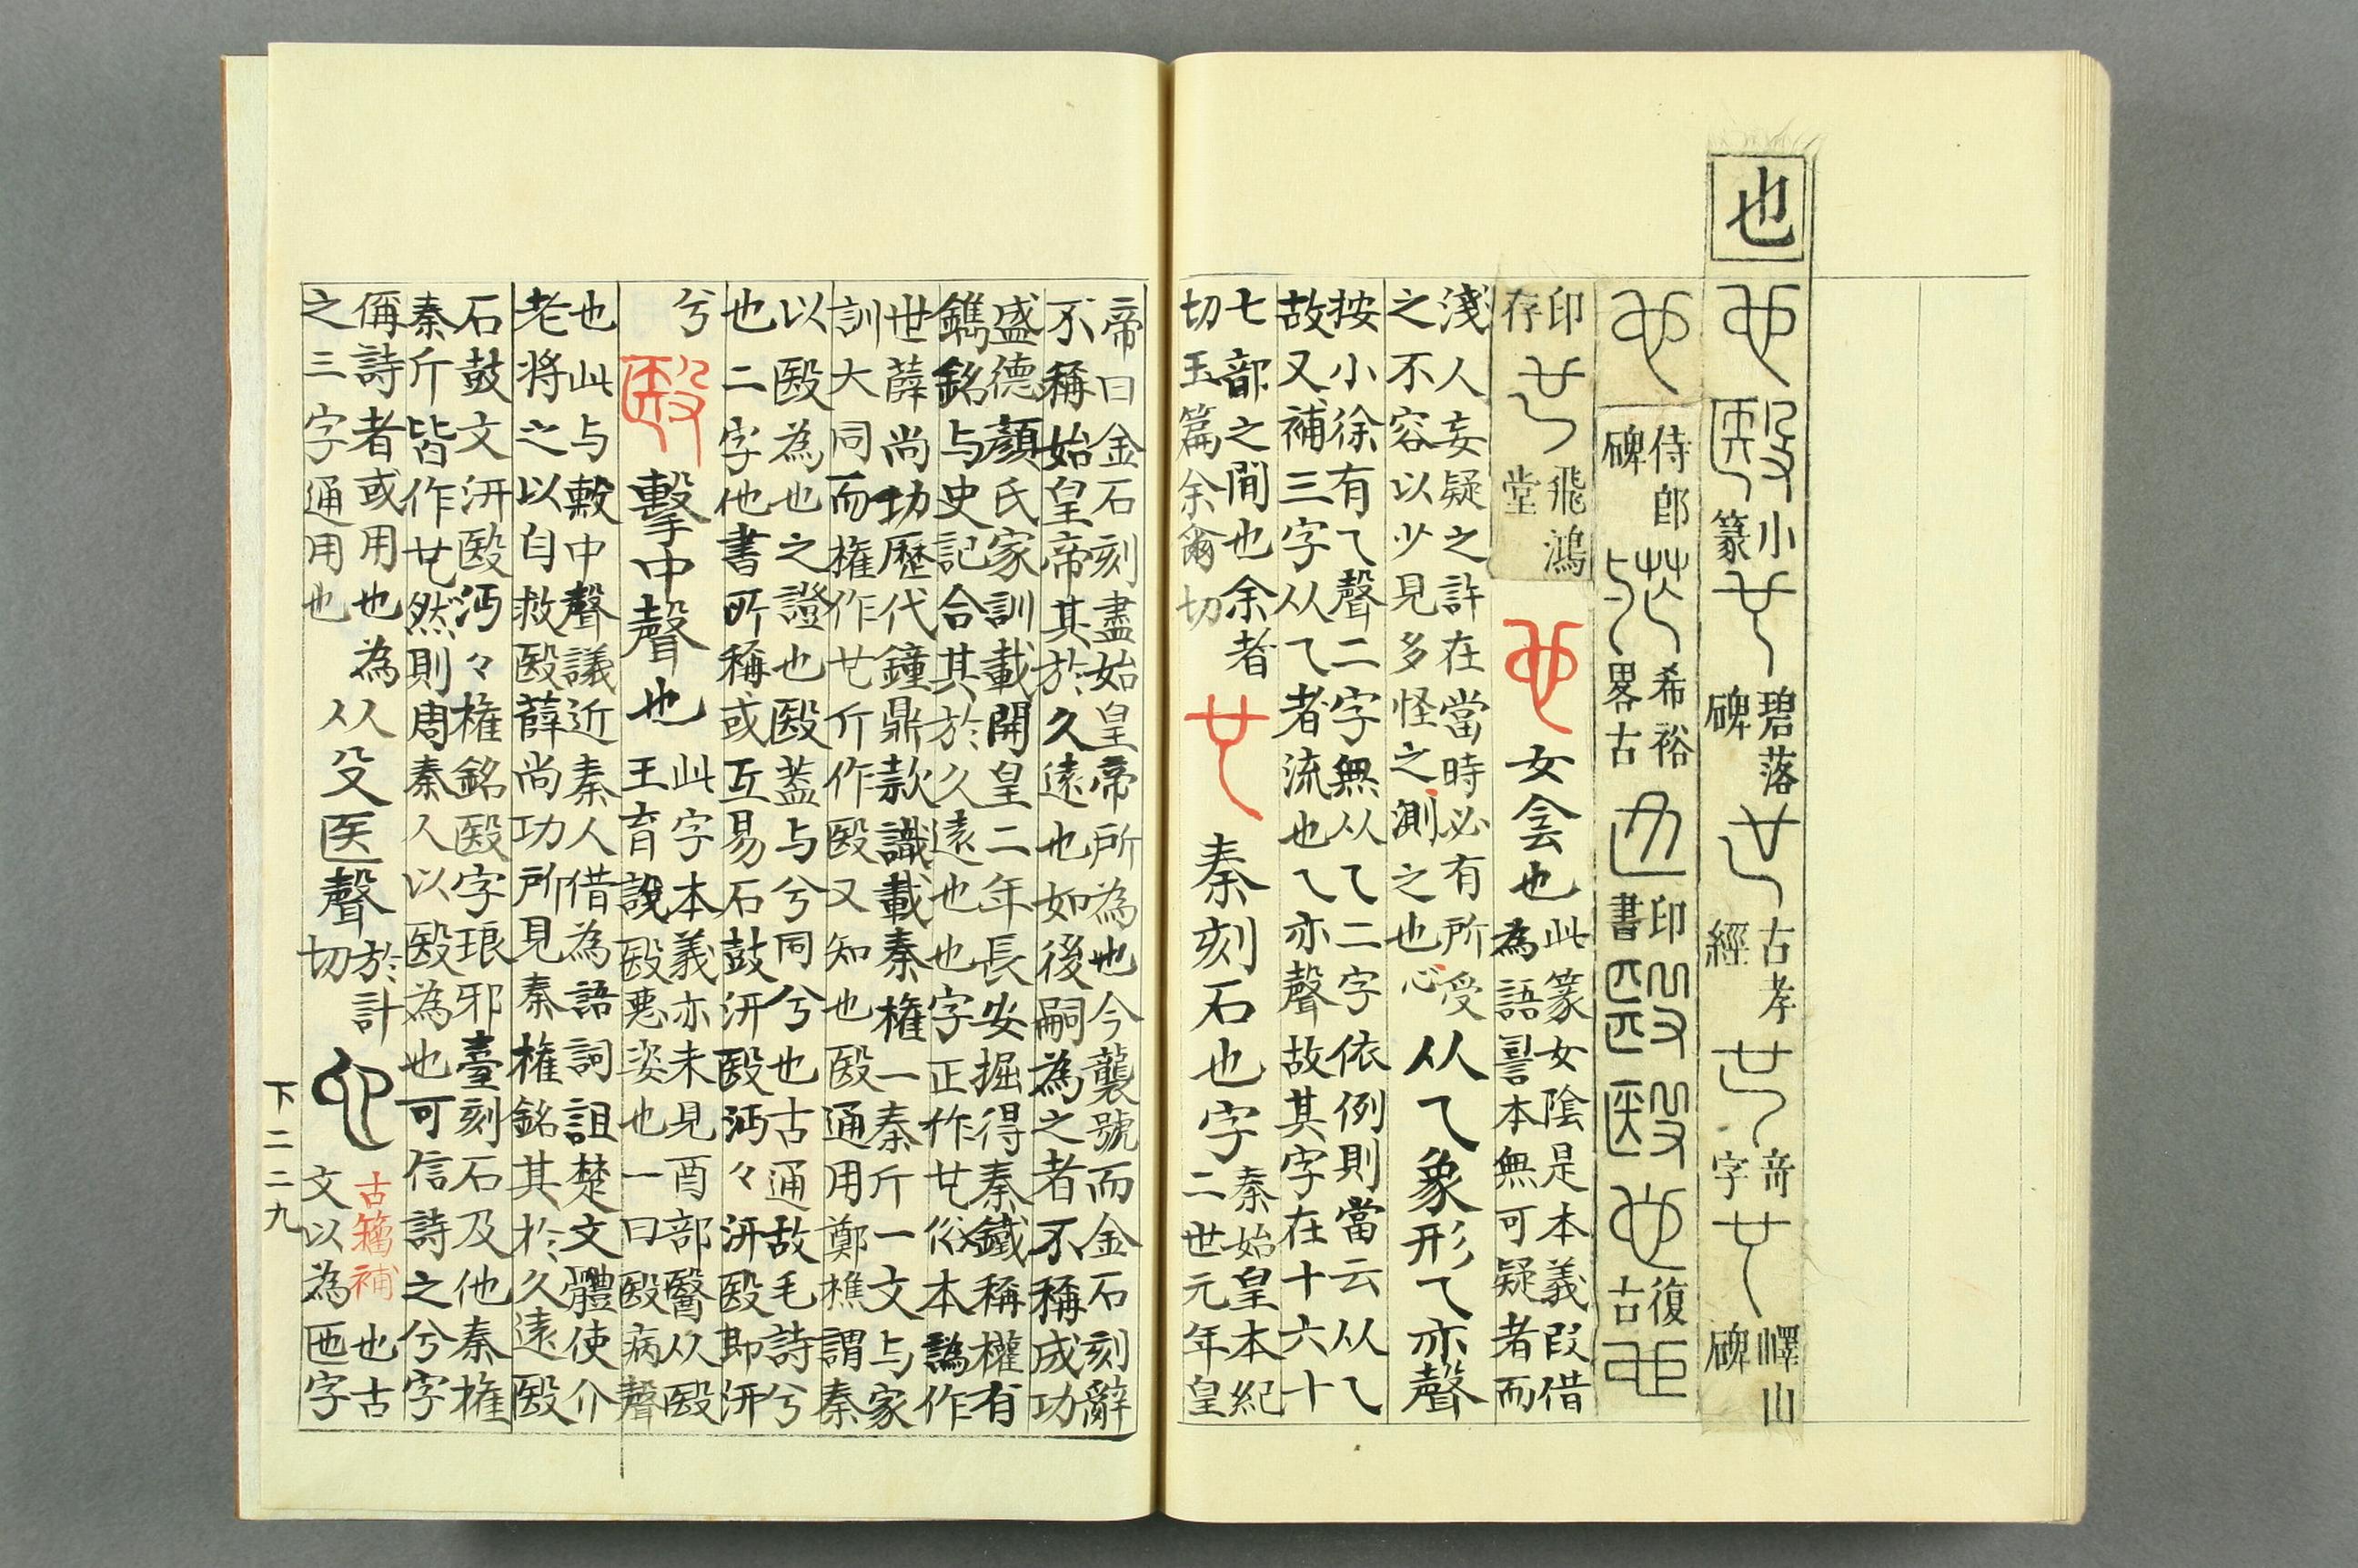 也 小篆 碧落碑 古孝經 竒字 嶧山碑
侍郎碑 希裕畧古 印書 復古
印存 飛鴻堂 女侌也 此篆女陰是本義叚借
為語䛐本無可疑者而
淺人妄疑之許在當時必有所受
之不容以少見多怪之測之也心 从乁象形乁亦聲
按小徐有乁聲二字無从乁二字依例則當云从乁
故又補三字从乁者流也乁亦聲故其字在十六十
七部之閒也余者
切玉篇余爾切 秦刻石也字 秦始皇本紀
二世元年皇
帝曰金石刻盡始皇帝所為也今襲號而金石刻辭
不稱始皇帝其於久遠也如後嗣為之者不稱成功
盛德顏氏家訓載開皇二年長安掘得秦鐵稱權有
鐫銘与史記合其於久遠也也字正作𠃟俗本譌作
世薛尚功歷代鐘鼎款識載秦權一秦斤一文与家
訓大同而權作𠃟斤作殹又知也殹通用鄭樵謂秦
以殹為也之證也殹葢与兮同兮也古通故毛詩兮
也二字他書所稱或互易石鼓汧殹沔々汧殹卽汧
兮 殹 擊中聲也 此字本義亦未見酉部醫从殹
王育說殹惡姿也一曰殹病聲
也此与𣪠中聲議近秦人借為語詞詛楚文軆使介
老將之以自救殹薛尚功所見秦權銘其於久遠殹
石鼓文汧殹沔々權銘殹字琅邪臺刻石及他秦權
秦斤皆作𠃟然則周秦人以殹為也可信詩之兮字
偁詩者或用也為
之三字通用也 从殳医聲 於計切 古籀補 也古
文以為匜字
下二二九